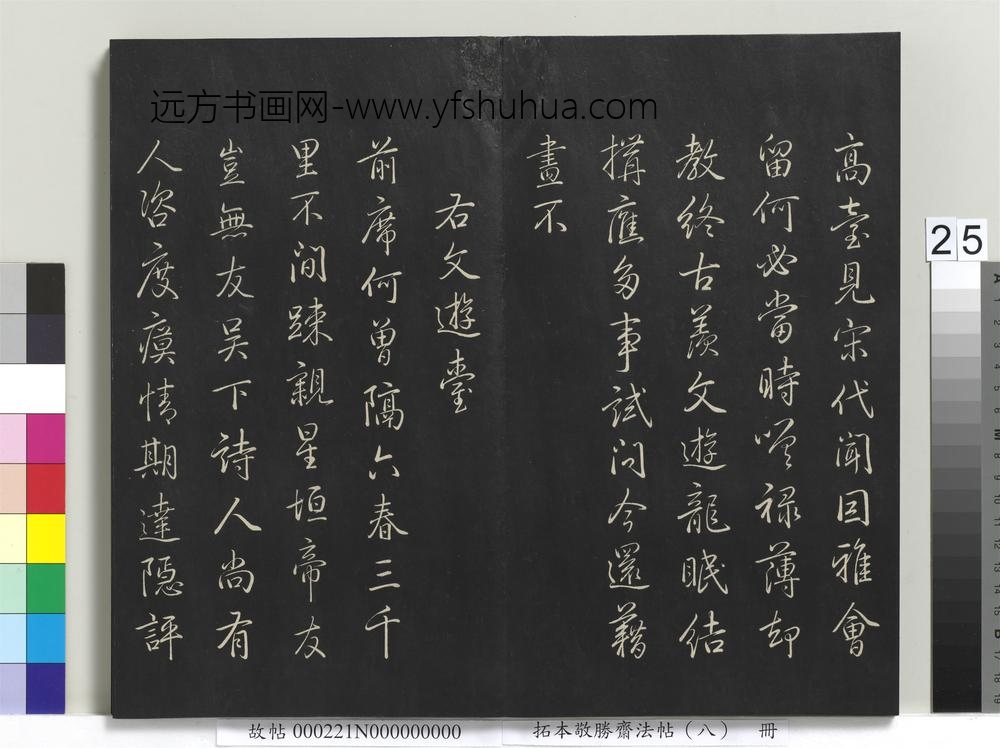 远方书画网-www.yfshuhua.com
高臺見宋代聞因雅會
留何必當時嗟祿薄却
教終古羨文遊龍眠結
搆應多事試问今還藉
畫不
右文遊臺
前席何曾隔六春三千
里不間踈親星垣帝友
豈無友吴下詩人尚有
人咨度瘼情期達隱評
25
故帖 000221N000000000
拓本敬勝齋法帖（八） 冊